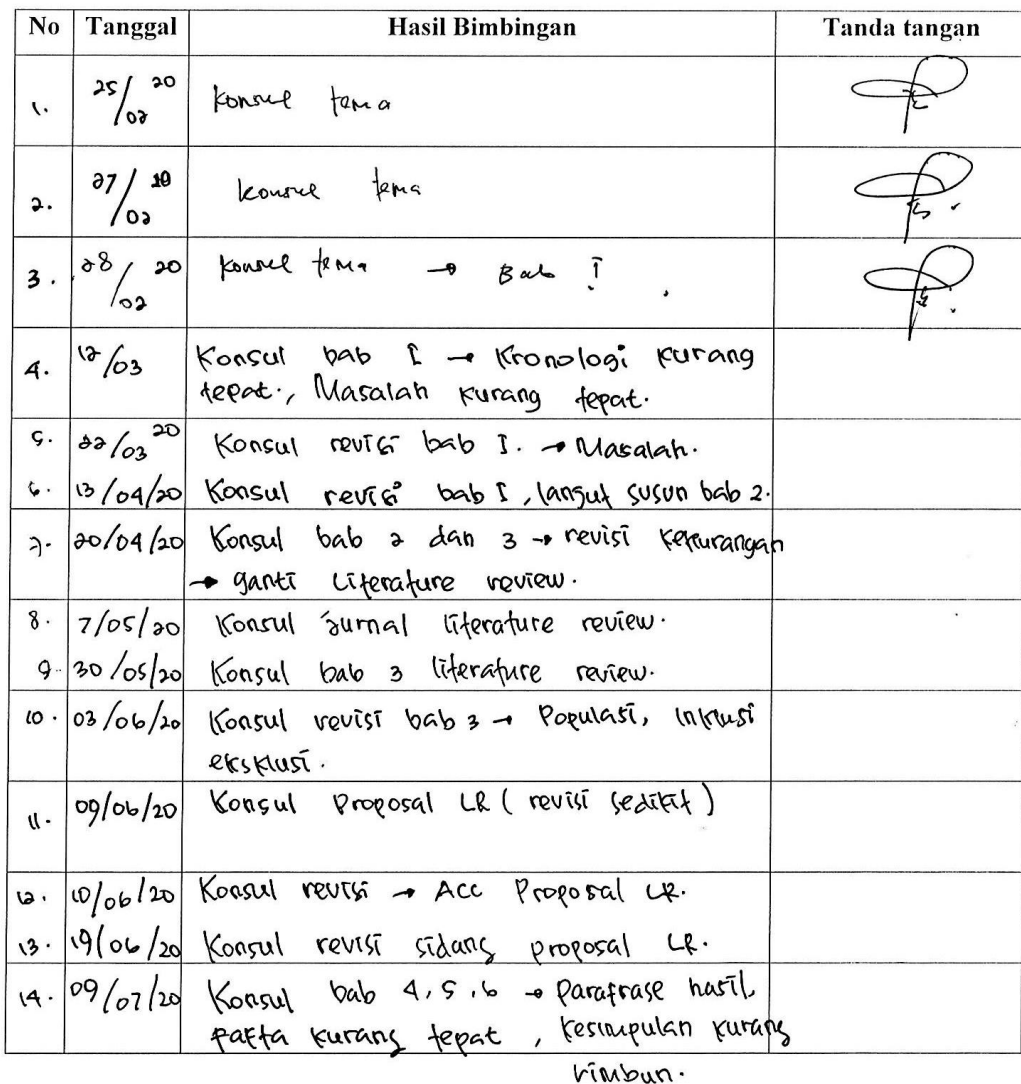 No Tanggal Hasil Bimbingan Tanda tangan
1. 25/02 20 Konsul tema
2. 27/02 20 Konsul tema
3. 28/02 20 Konsul tema → Bab I
4. 12/03 Konsul bab I → Kronologi kurang
tepat., Masalah kurang tepat.
5. 22/03 20 Konsul revisi bab I. → Masalah.
6. 13/04/20 Konsul revisi bab I, lanjut susun bab 2.
7. 20/04/20 Konsul bab 2 dan 3 → revisi kekurangan
→ ganti Literature review.
8. 7/05/20 Konsul Jurnal literature review.
9. 30/05/20 Konsul bab 3 literature review.
10. 03/06/20 Konsul revisi bab 3 → Populasi, Inklusi
eksklusi.
11. 09/06/20 Konsul Proposal LR (revisi sedikit)
12. 10/06/20 Konsul revisi → Acc Proposal LR.
13. 19/06/20 Konsul revisi sidang proposal LR.
14. 09/07/20 Konsul bab 4, 5, 6 → Parafrase hasil,
Fakta kurang tepat, kesimpulan kurang
rimbun.